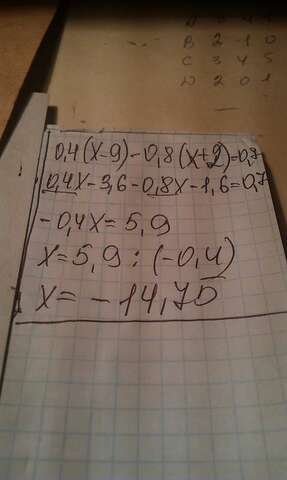 B 2 -1 0
C 3 4 5
D 2 0 1
0,4(x-9)-0,8(x+2)=0,7
0,4x-3,6-0,8x-1,6=0,7
-0,4x=5,9
x=5,9:(-0,4)
x=-14,75